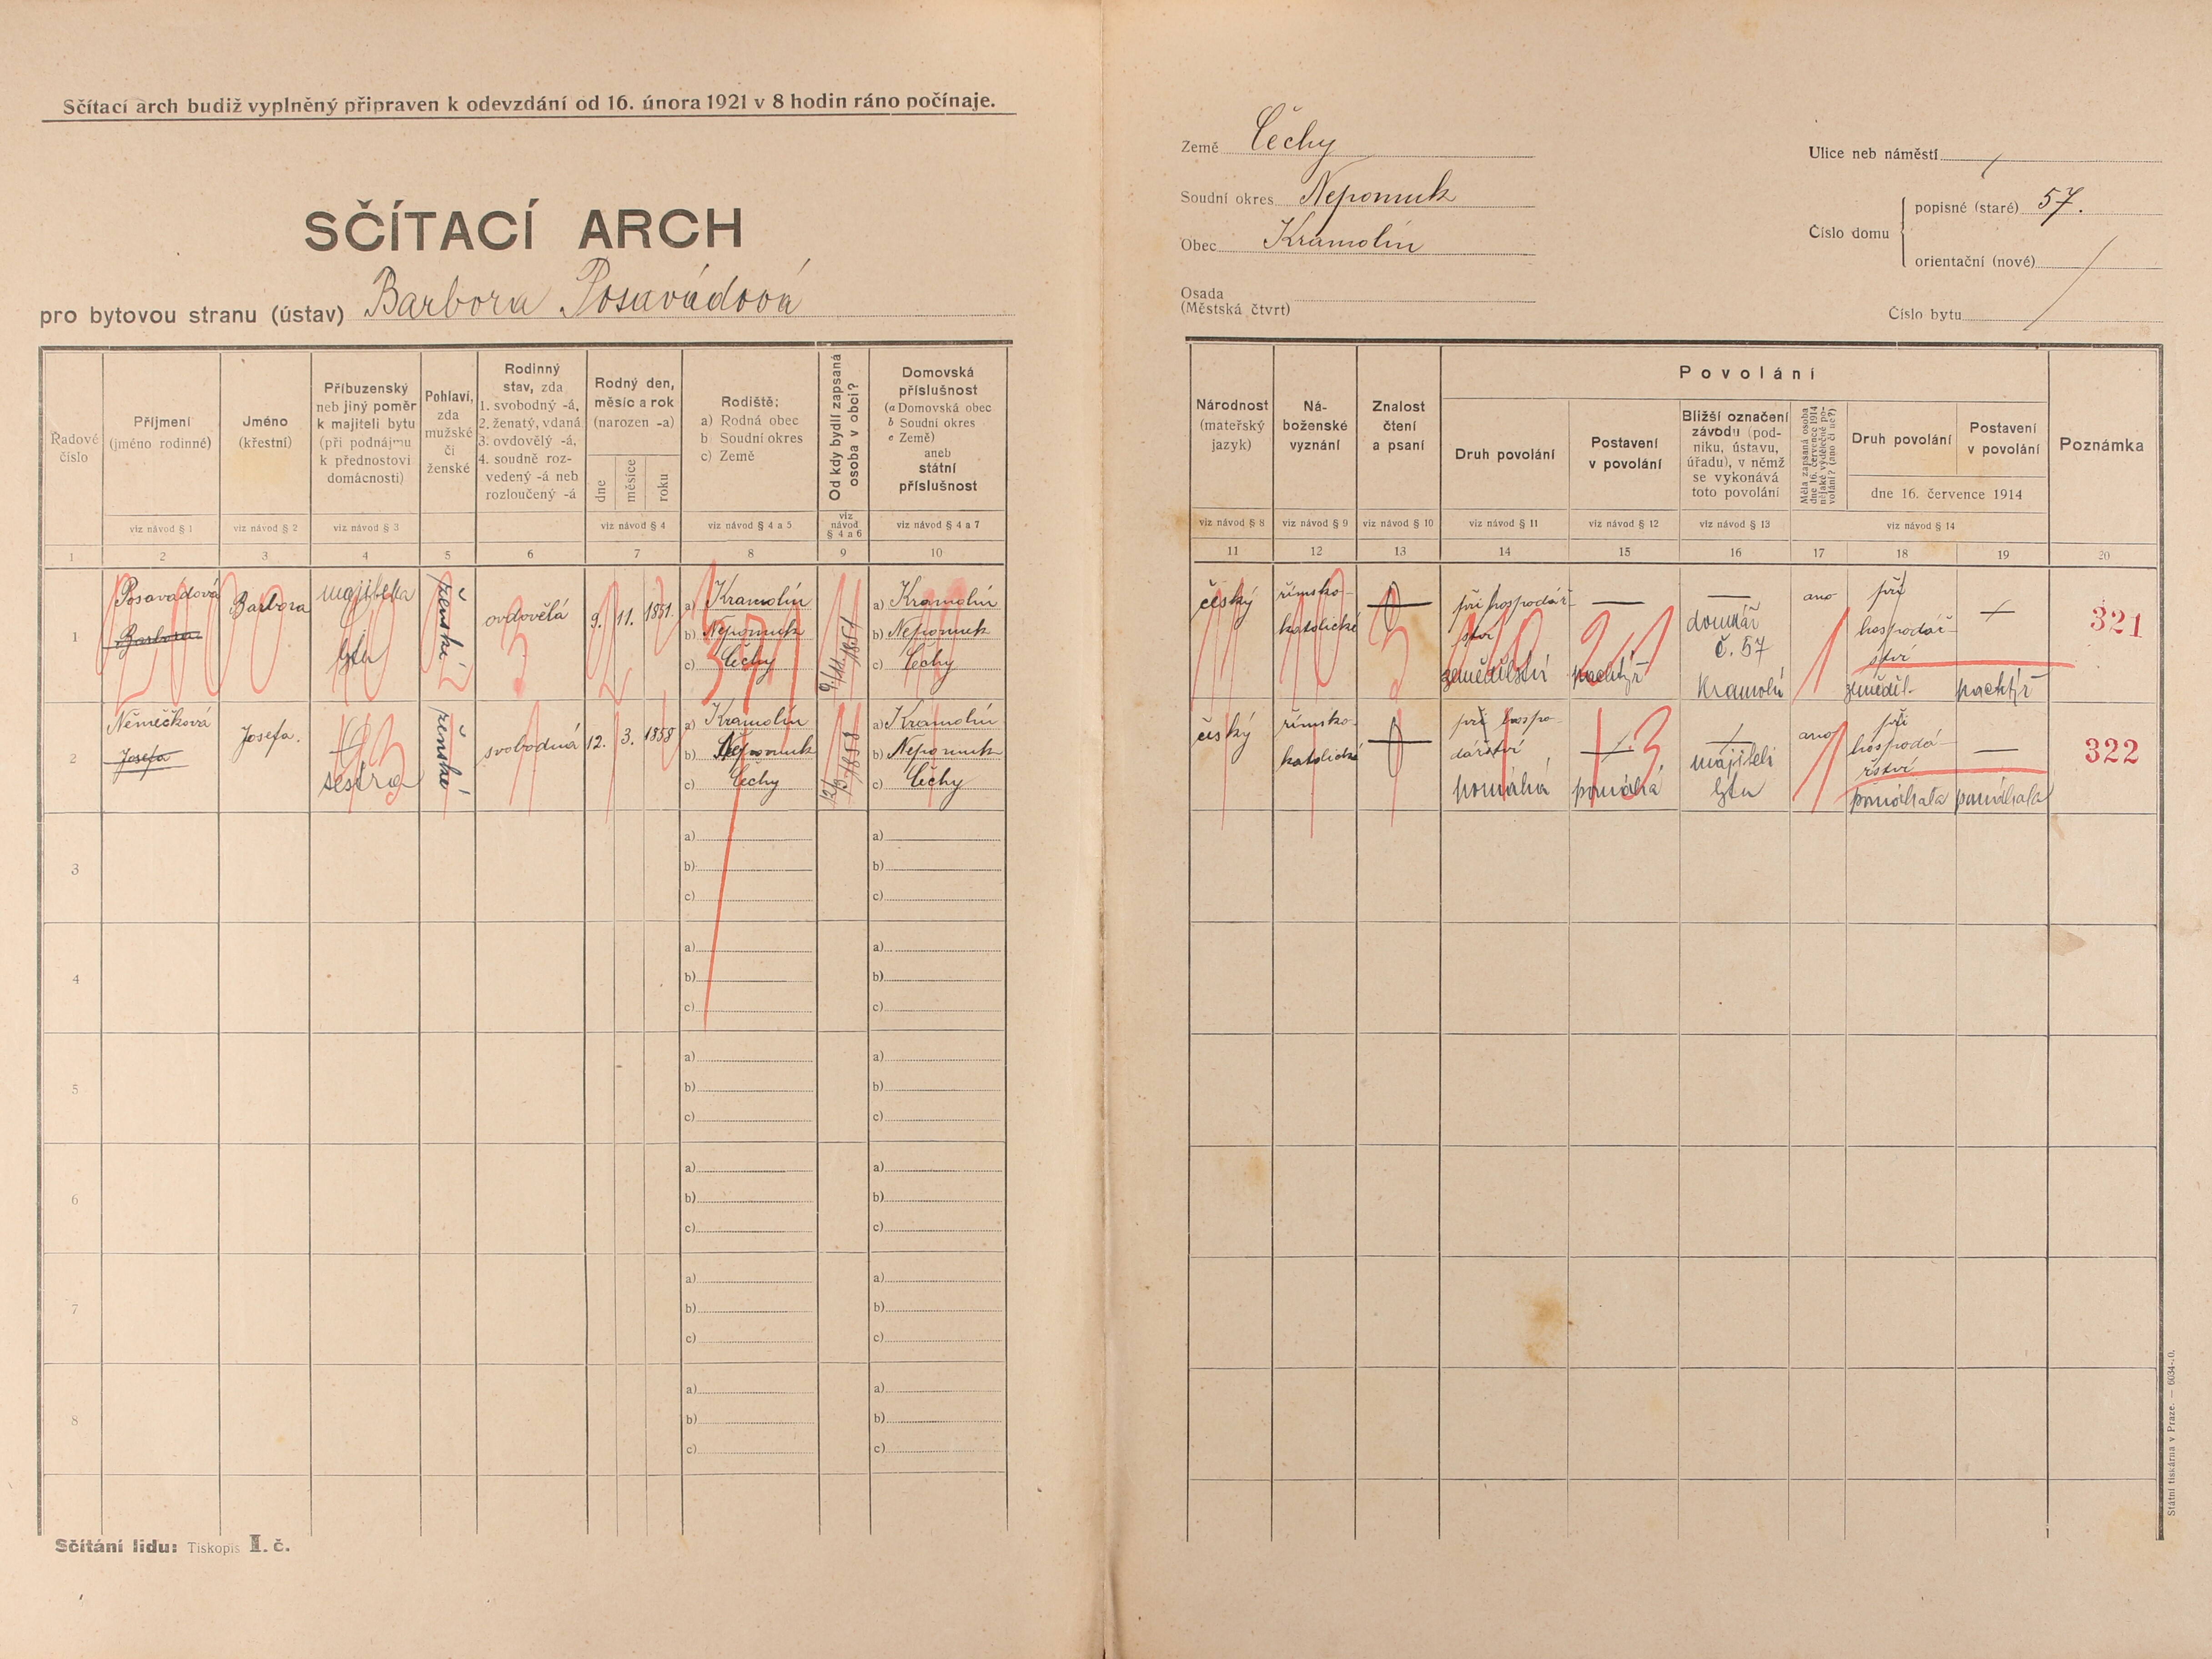 Sčítací arch budiž vyplněný připraven k odevzdání od 16. února 1921 v 8 hodin ráno počínaje.
SČÍTACÍ ARCH
pro bytovou stranu (ústav) Barbora Posavádová
Země Čechy
Soudní okres Nepomuk
Obec Kramolín
Osada
(Městská čtvrt)
Ulice neb náměstí
Číslo domu
popisné (staré) 57.
orientační (nové)
Číslo bytu
Řadové
číslo
Příjmení
(jméno rodinné)
Jméno
(křestní)
Příbuzenský
neb jiný poměr
k majiteli bytu
(při podnájmu
k přednostovi
domácnosti)
Pohlaví,
zda
mužské
či
ženské
Rodinný
stav, zda
1. svobodný -á,
2. ženatý, vdaná
3. ovdovělý -á,
4. soudně roz-
vedený -á neb
rozloučený -á
Rodný den,
měsíc a rok
(narozen -a)
dne
měsíce
roku
Rodiště:
a) Rodná obec
b Soudní okres
c) Země
Od kdy bydlí zapsaná
osoba v obci?
Domovská
příslušnost
(a Domovská obec
b Soudní okres
c Země)
aneb
státní
příslušnost
viz návod § 1
viz návod § 2
viz návod § 3
viz návod § 4
viz návod § 4 a 5
viz
návod
§ 4 a 6
viz návod § 4 a 7
1 2 3 4 5 6 7 8 9 10
Národnost
(mateřský
jazyk)
Ná-
boženské
vyznání
Znalost
čtení
a psaní
Povolání
Druh povolání
Postavení
v povolání
Bližší označení
závodu (pod-
niku, ústavu,
úřadu), v němž
se vykonává
toto povolání
Měla zapsaná osoba
dne 16. července 1914
nějaké výdělečné po-
volání? (ano či ne?)
Druh povolání
Postavení
v povolání
dne 16. července 1914
Poznámka
viz návod § 8
viz návod § 9
viz návod § 10
viz návod § 11
viz návod § 12
viz návod § 13
viz návod § 14
11 12 13 14 15 16 17 18 19 20
1
Posavádová
Barbora
Barbora
majitelka
bytu
ženské
ovdovělá
9. 11. 1851
a) Kramolín
b) Nepomuk
c) Čechy
9/11 1851
a) Kramolín
b) Nepomuk
c) Čechy
český
římsko-
katolické
při hospodář-
ství
zemědělství
pachtýř
domkář
č. 57
Kramolín
ano
při
hospodář-
ství
zeměděl.
pachtýř
321
2
Němečková
Josefa
Josefa.
sestra
ženské
svobodná
12. 3. 1858
a) Kramolín
b) Nepomuk
c) Čechy
12/3 1858
a) Kramolín
b) Nepomuk
c) Čechy
český
římsko-
katolické
při hospo-
dářství
pomáhá
pomáhá
majiteli
bytu
ano
při
hospodá-
řství
pomáhala
pomáhala
322
3
a)
b)
c)
a)
b)
c)
4
a)
b)
c)
a)
b)
c)
5
a)
b)
c)
a)
b)
c)
6
a)
b)
c)
a)
b)
c)
7
a)
b)
c)
a)
b)
c)
8
a)
b)
c)
a)
b)
c)
Sčítání lidu: Tiskopis I. č.